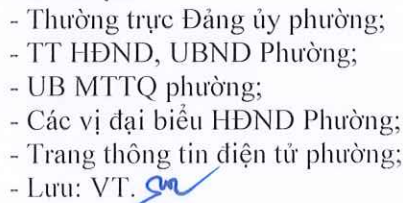 - Thường trực Đảng ủy phường;
- TT HĐND, UBND Phường;
- UB MTTQ phường;
- Các vị đại biểu HĐND Phường;
- Trang thông tin điện tử phường;
- Lưu: VT.